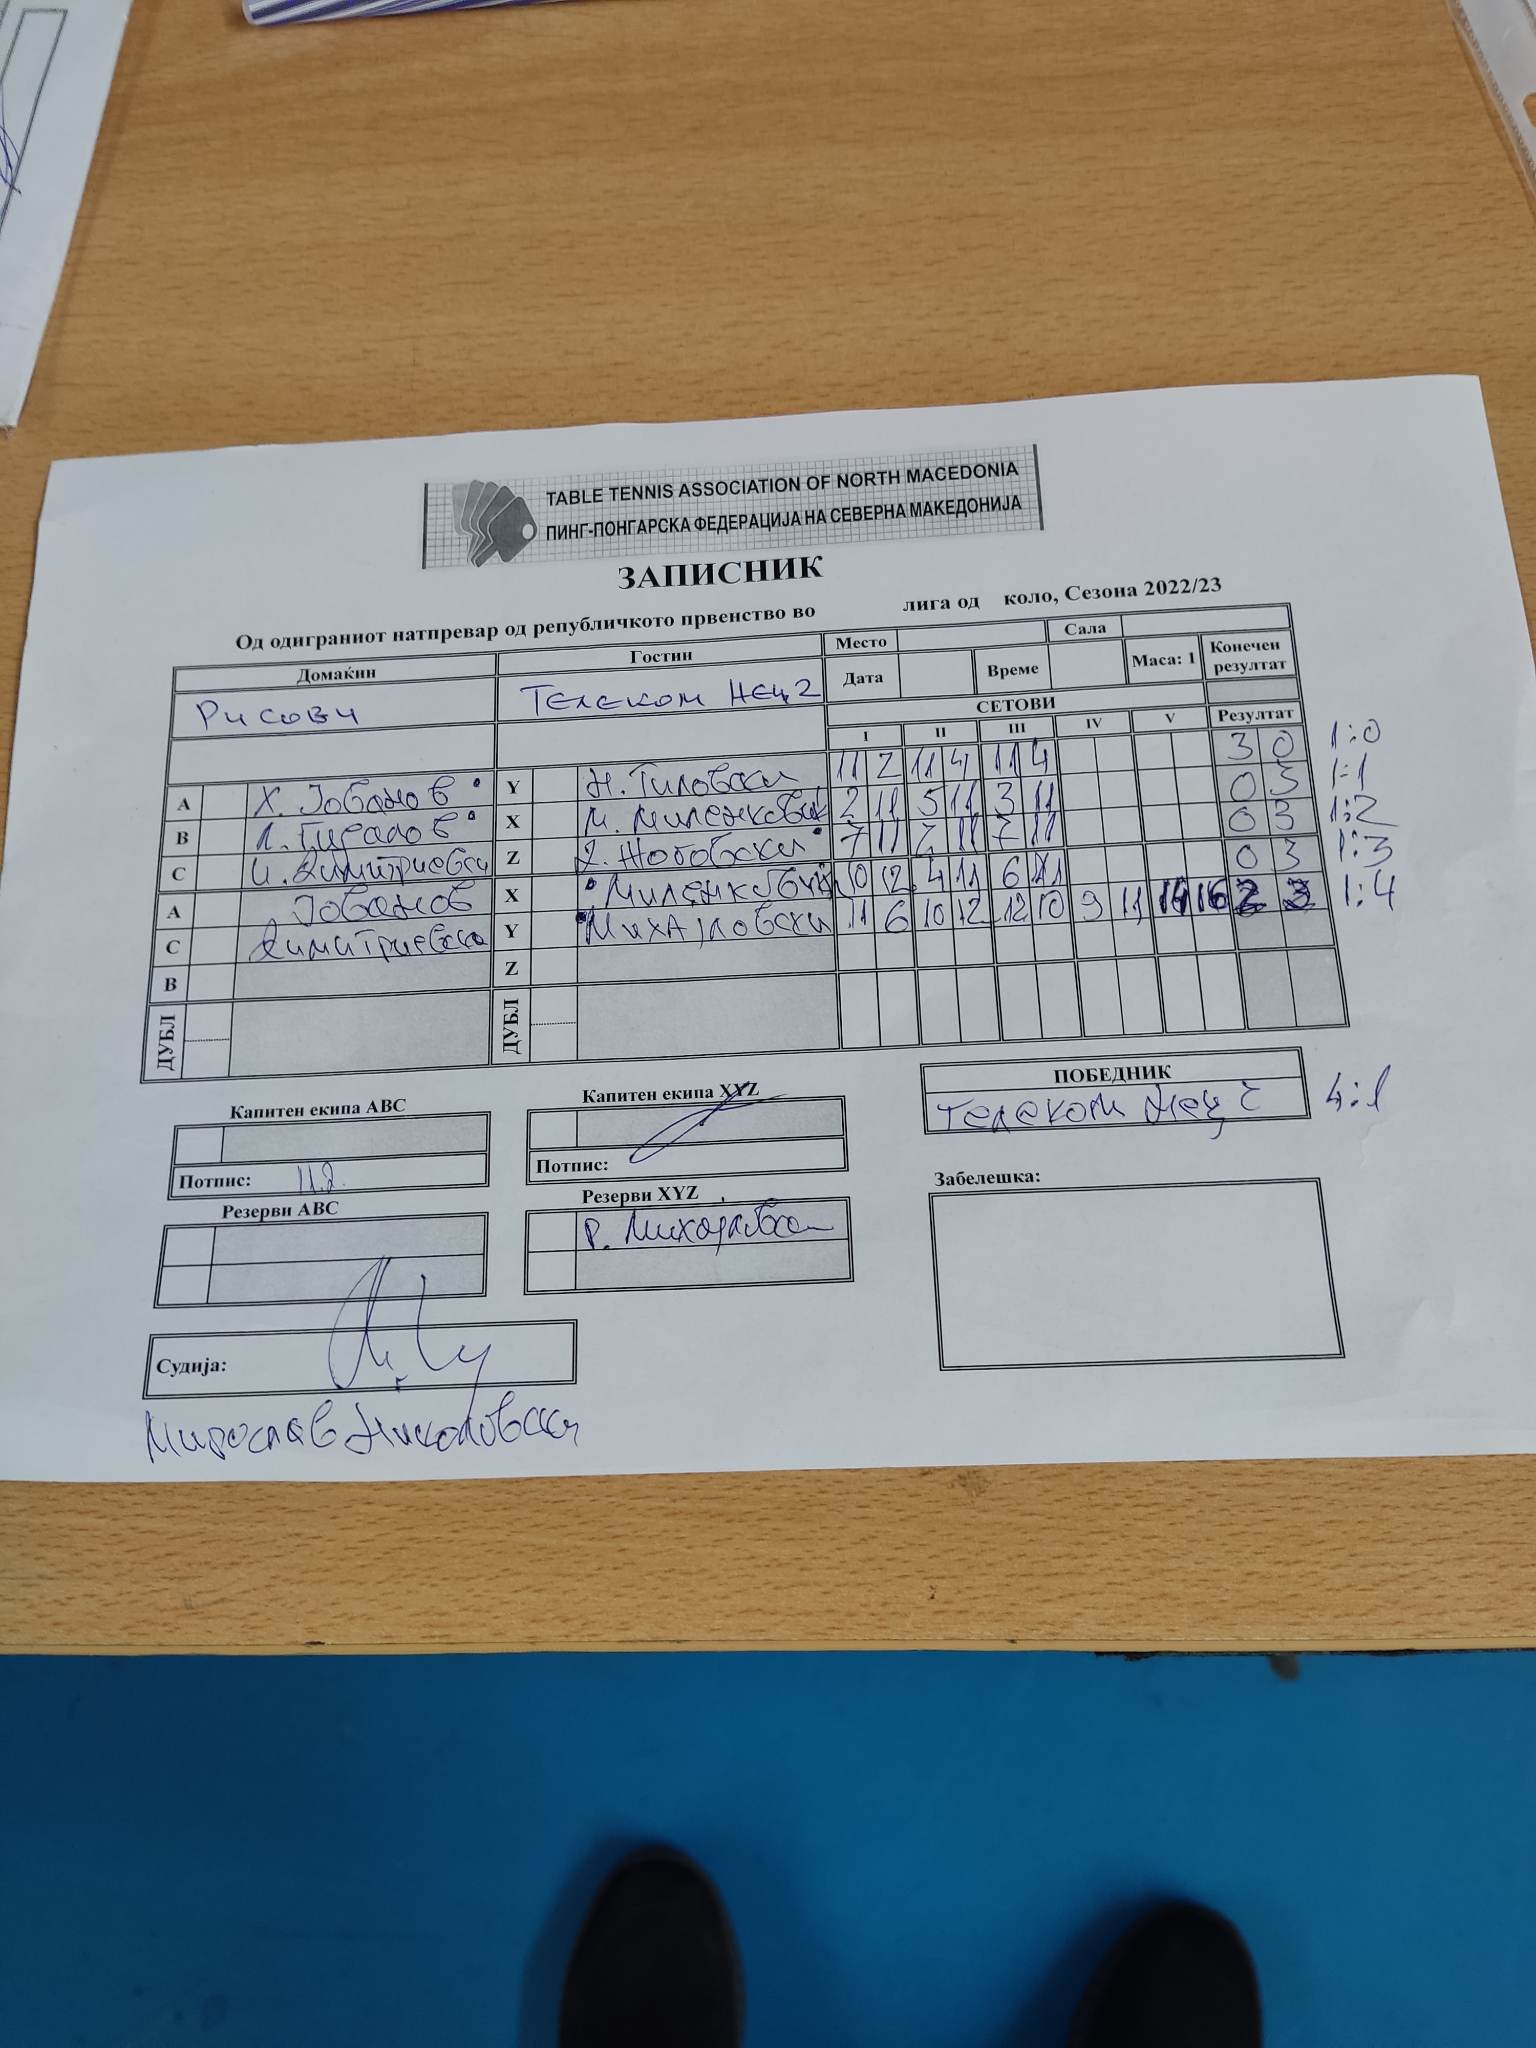 TABLE TENNIS ASSOCIATION OF NORTH MACEDONIA
ПИНГ-ПОНГАРСКА ФЕДЕРАЦИЈА НА СЕВЕРНА МАКЕДОНИЈА
ЗАПИСНИК
Од одиграниот натпревар од републичкото првенство во лига од коло, Сезона 2022/23
Домаќин Гостин Место Сала
Дата Време Маса: 1 Конечен резултат
Рисови Телеком
СЕТОВИ
I II III IV V Резултат
A Х. Јованов Y 11 2 11 4 11 4 3 0 1:0
B X М. Миленковиќ 2 11 5 11 3 11 0 3 1:1
C И. Димитриевски Z 7 11 2 11 7 11 0 3 1:2
A Јованов X Миленковиќ 10 12 4 11 6 11 0 3 1:3
C Димитриевски Y Михајловски 11 6 10 12 12 10 9 11 14 16 2 3 1:4
B Z
ДУБЛ ДУБЛ
Капитен екипа ABC Капитен екипа XYZ ПОБЕДНИК
Телеком 4:1
Потпис: Потпис:
Резерви ABC Резерви XYZ Забелешка:
Р. Михајловски
Судија:
Мирослав Николовски